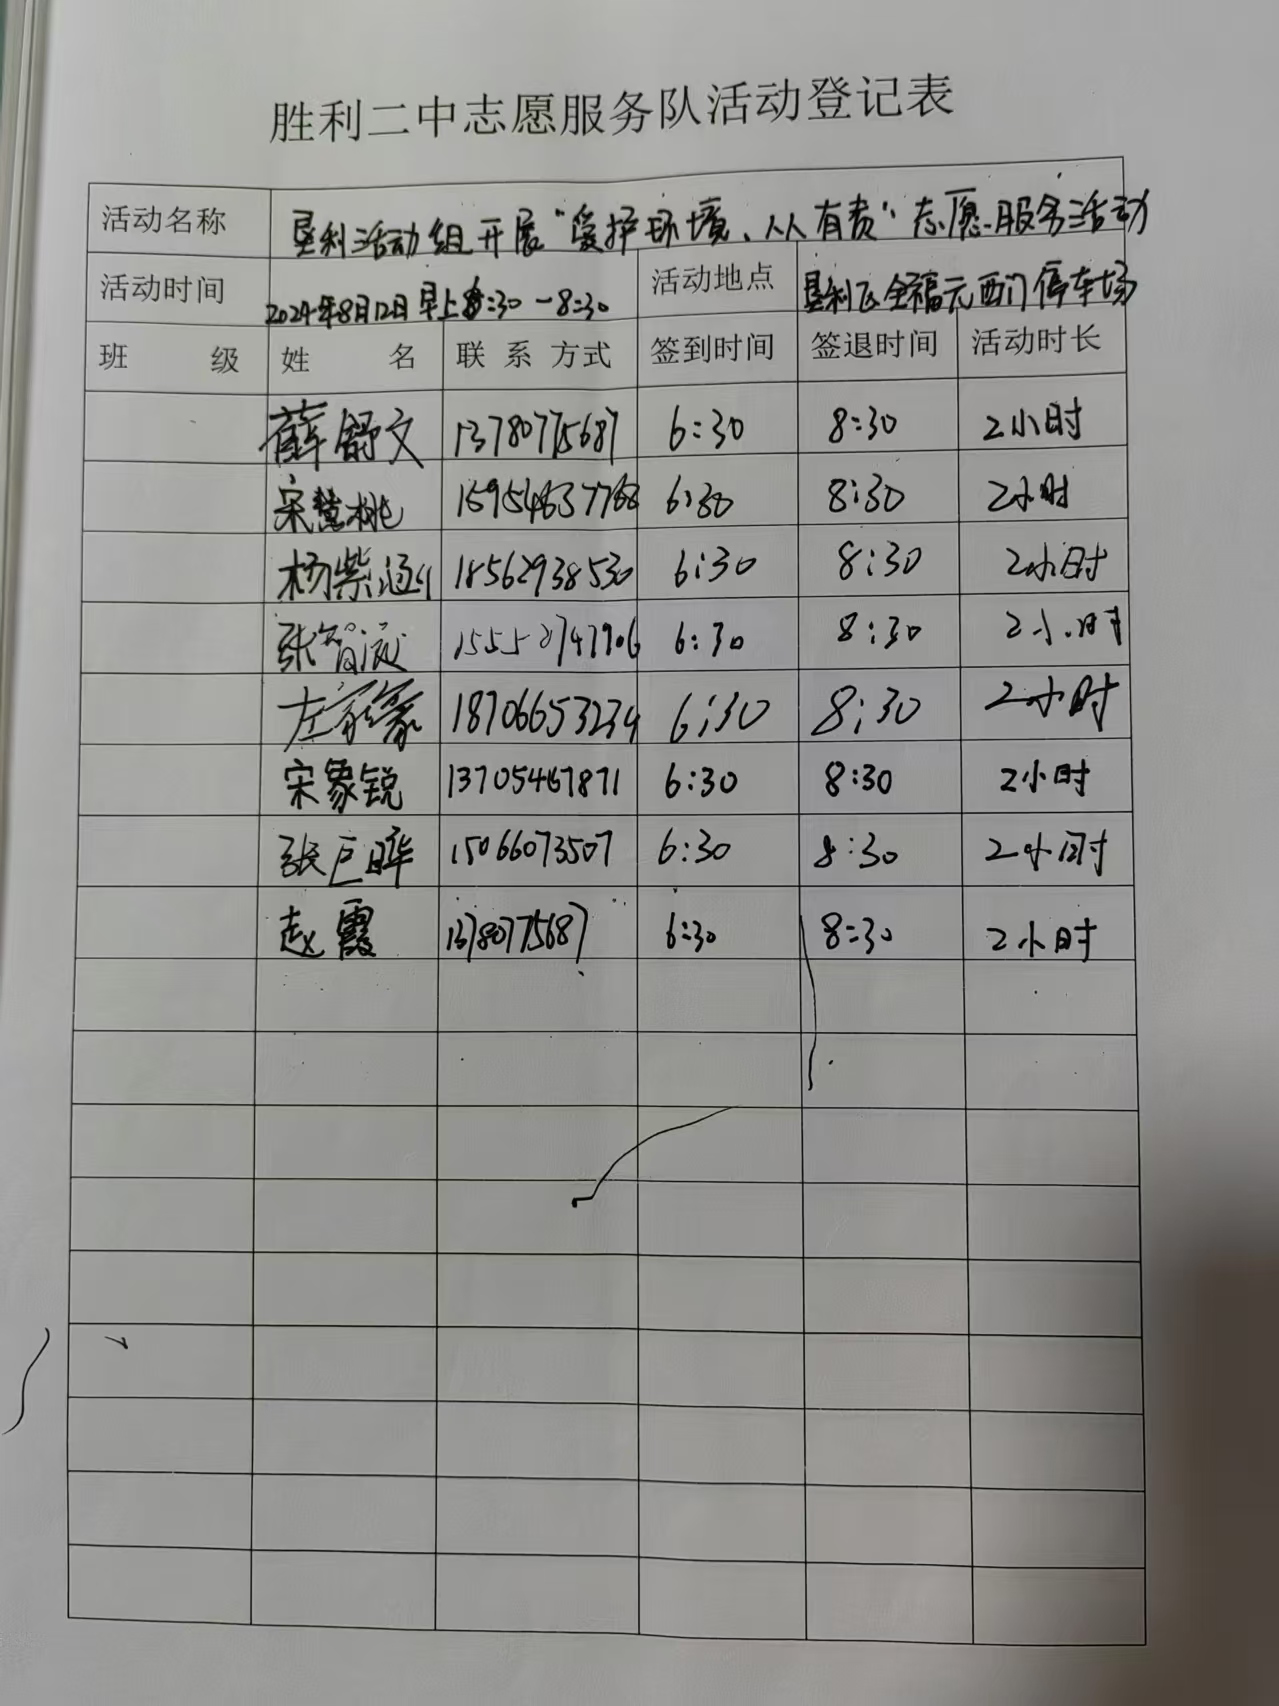 胜利二中志愿服务队活动登记表
活动名称 垦利活动组开展“爱护环境、人人有责”志愿服务活动
活动时间 2024年8月12日早上6:30-8:30 活动地点 垦利区全福元西门停车场
班 级 姓 名 联 系 方式 签到时间 签退时间 活动时长
薛舒文 13780775687 6:30 8:30 2小时
宋慧桃 15954637768 6:30 8:30 2小时
杨紫涵 18562938530 6:30 8:30 2小时
张智 6:30 8:30 2小时
左家豪 18706653234 6:30 8:30 2小时
宋象锐 13705467871 6:30 8:30 2小时
张巨晔 15066073507 6:30 8:30 2小时
赵霞 13780775687 6:30 8:30 2小时